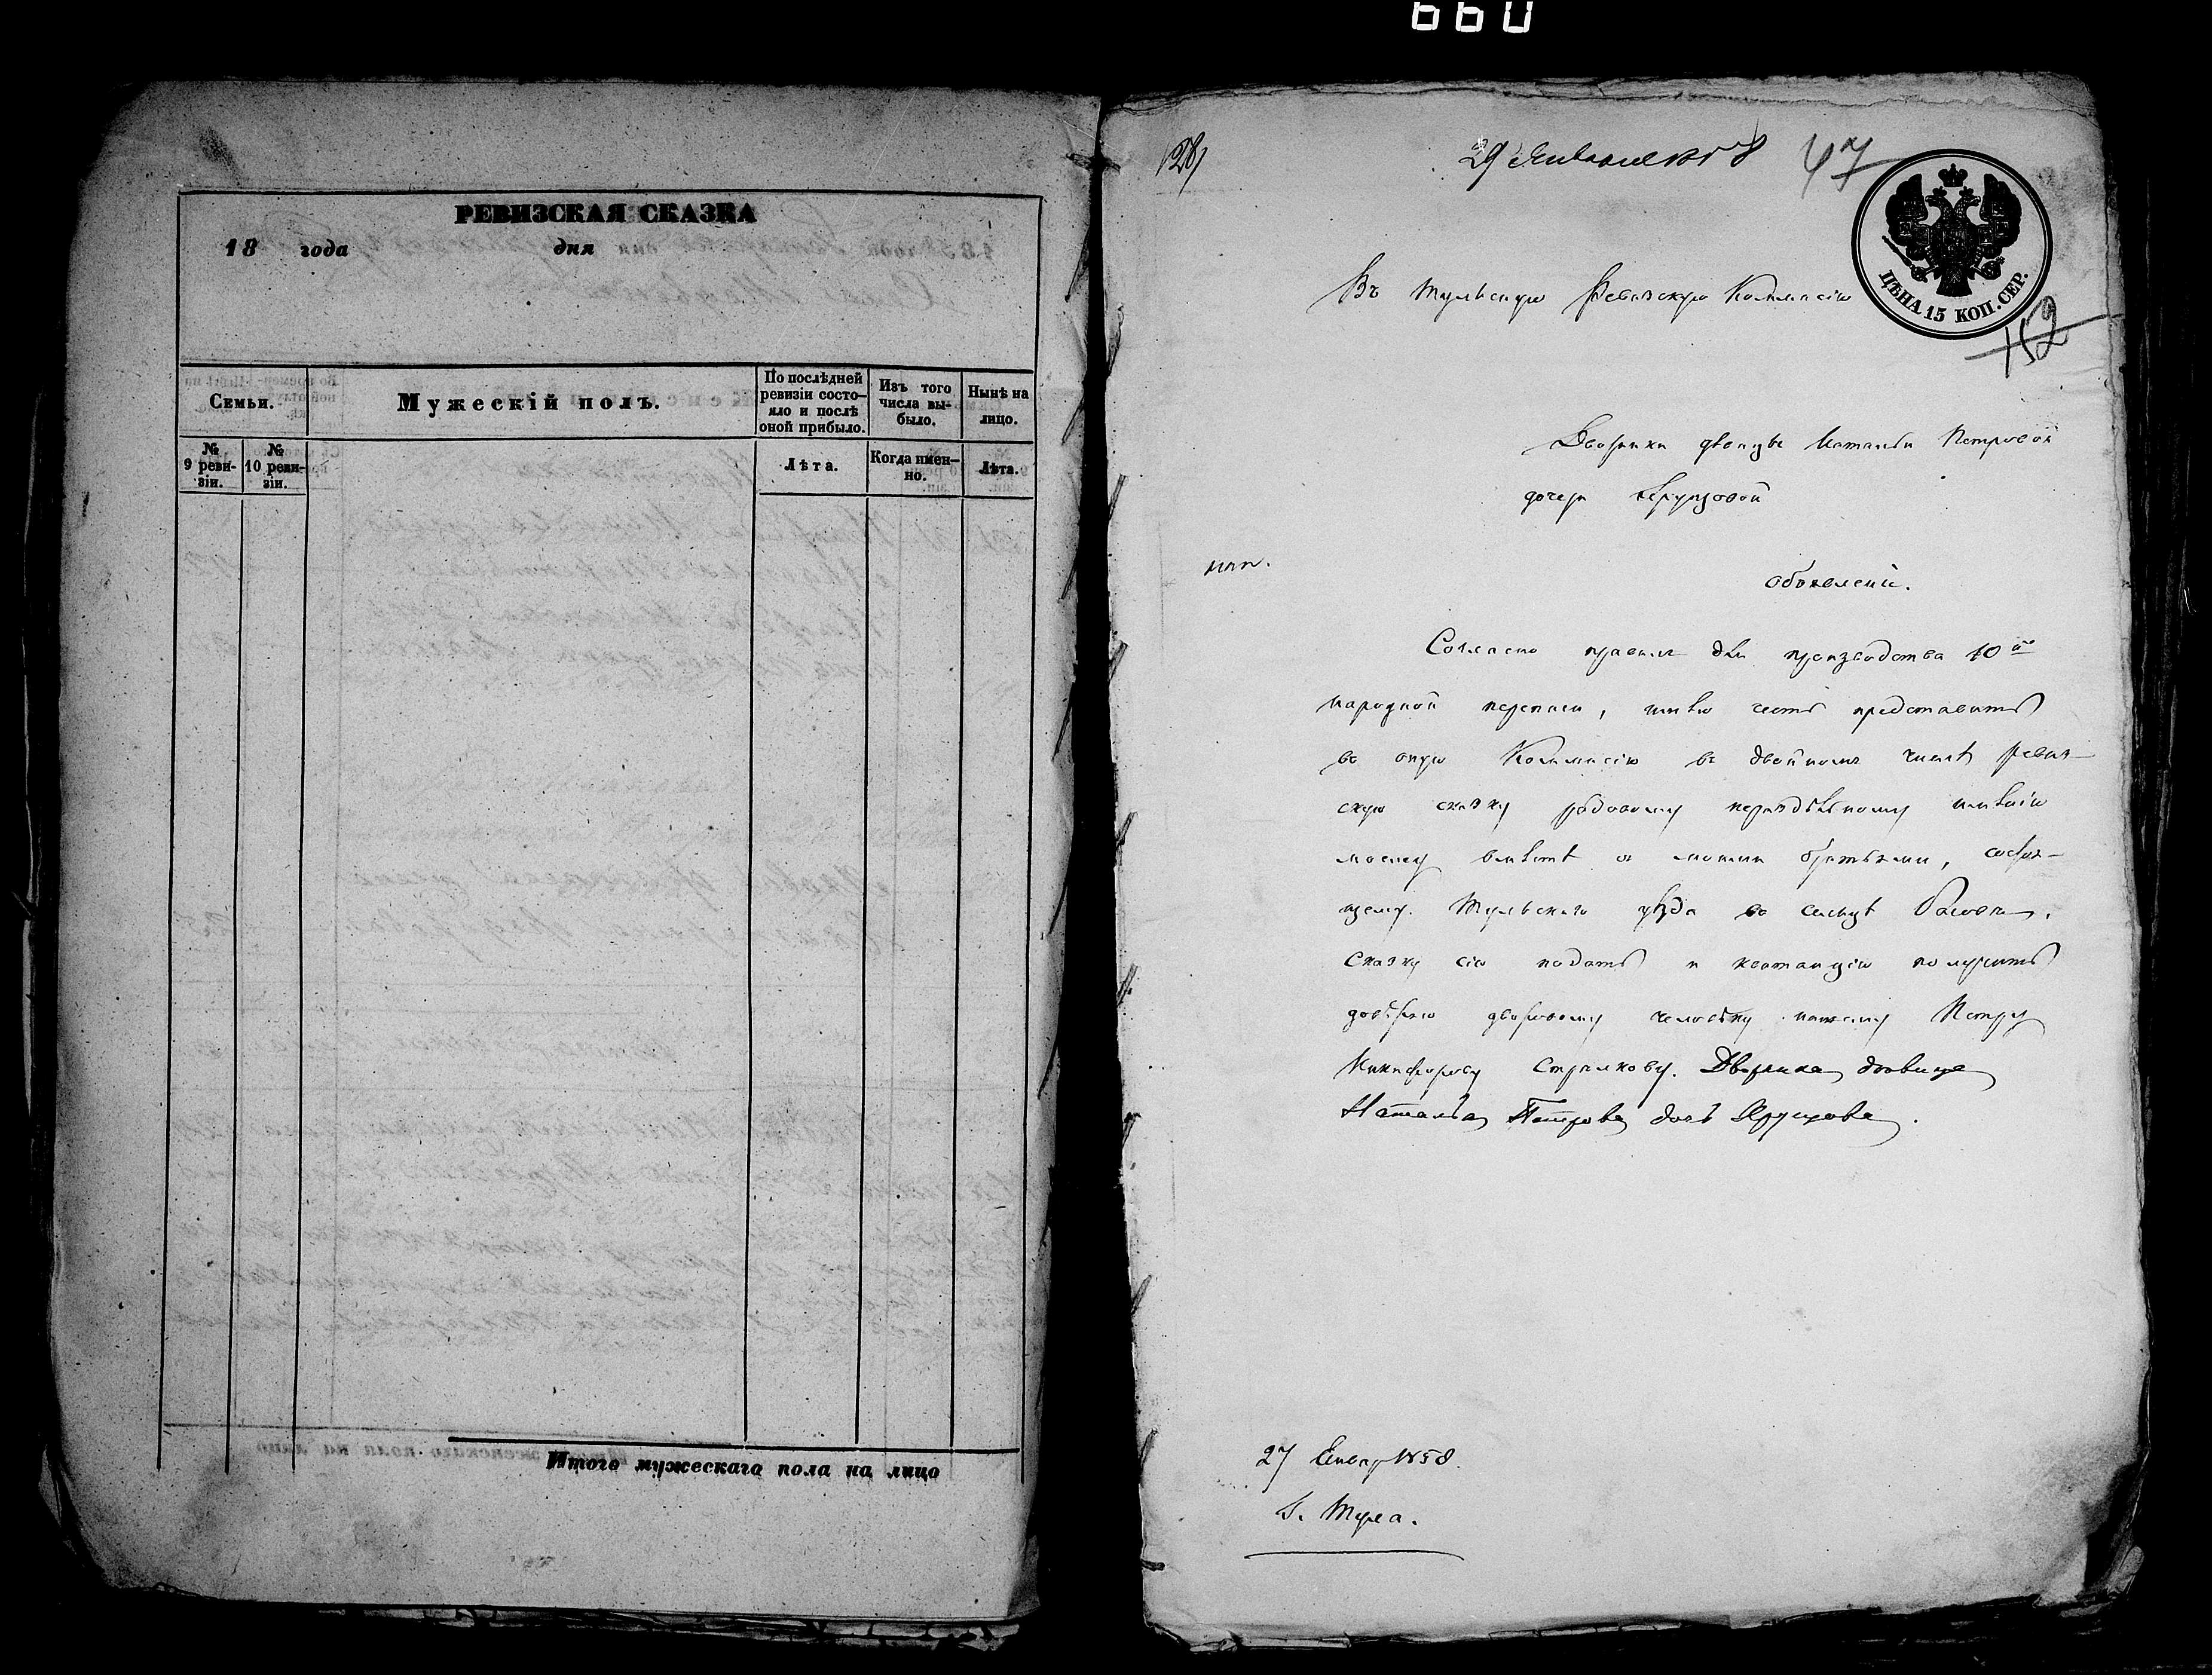 660
РЕВИЗСКАЯ СКАЗКА
18 года дня
Семьи.
Мужескій полъ.
По послѣдней ревизіи состояло и послѣ оной прибыло.
Изъ того числа выбыло.
Нынѣ на лицо.
№ 9 ревизіи.
№ 10 ревизіи.
Лѣта.
Когда именно.
Лѣта.
Итого мужескаго пола на лицо
128
29 Января 1858
47
ЦѢНА 15 КОП. СЕР.
152
Въ Тульскую Ревизскую Коммисію
Дворянки девицы Натальи Петровой
дочери Хрущовой
объявленіе.
Согласно правилъ для производства 10й
народной переписи, имѣю честь представить
въ оную Коммисію въ двойномъ числѣ ревиз-
скую сказку родовому нераздѣльному имѣнію
моему вмѣстѣ съ моими братьями, состоя-
щему Тульскаго уѣзда въ сельцѣ
Сказку сію подать и квитанцію получить
довѣряю дворовому человѣку нашему Петру
Никифорову Стрелкову. Дворянка девица
Наталья Петрова дочь Хрущова.
27 Января 1858.
Г. Тула.